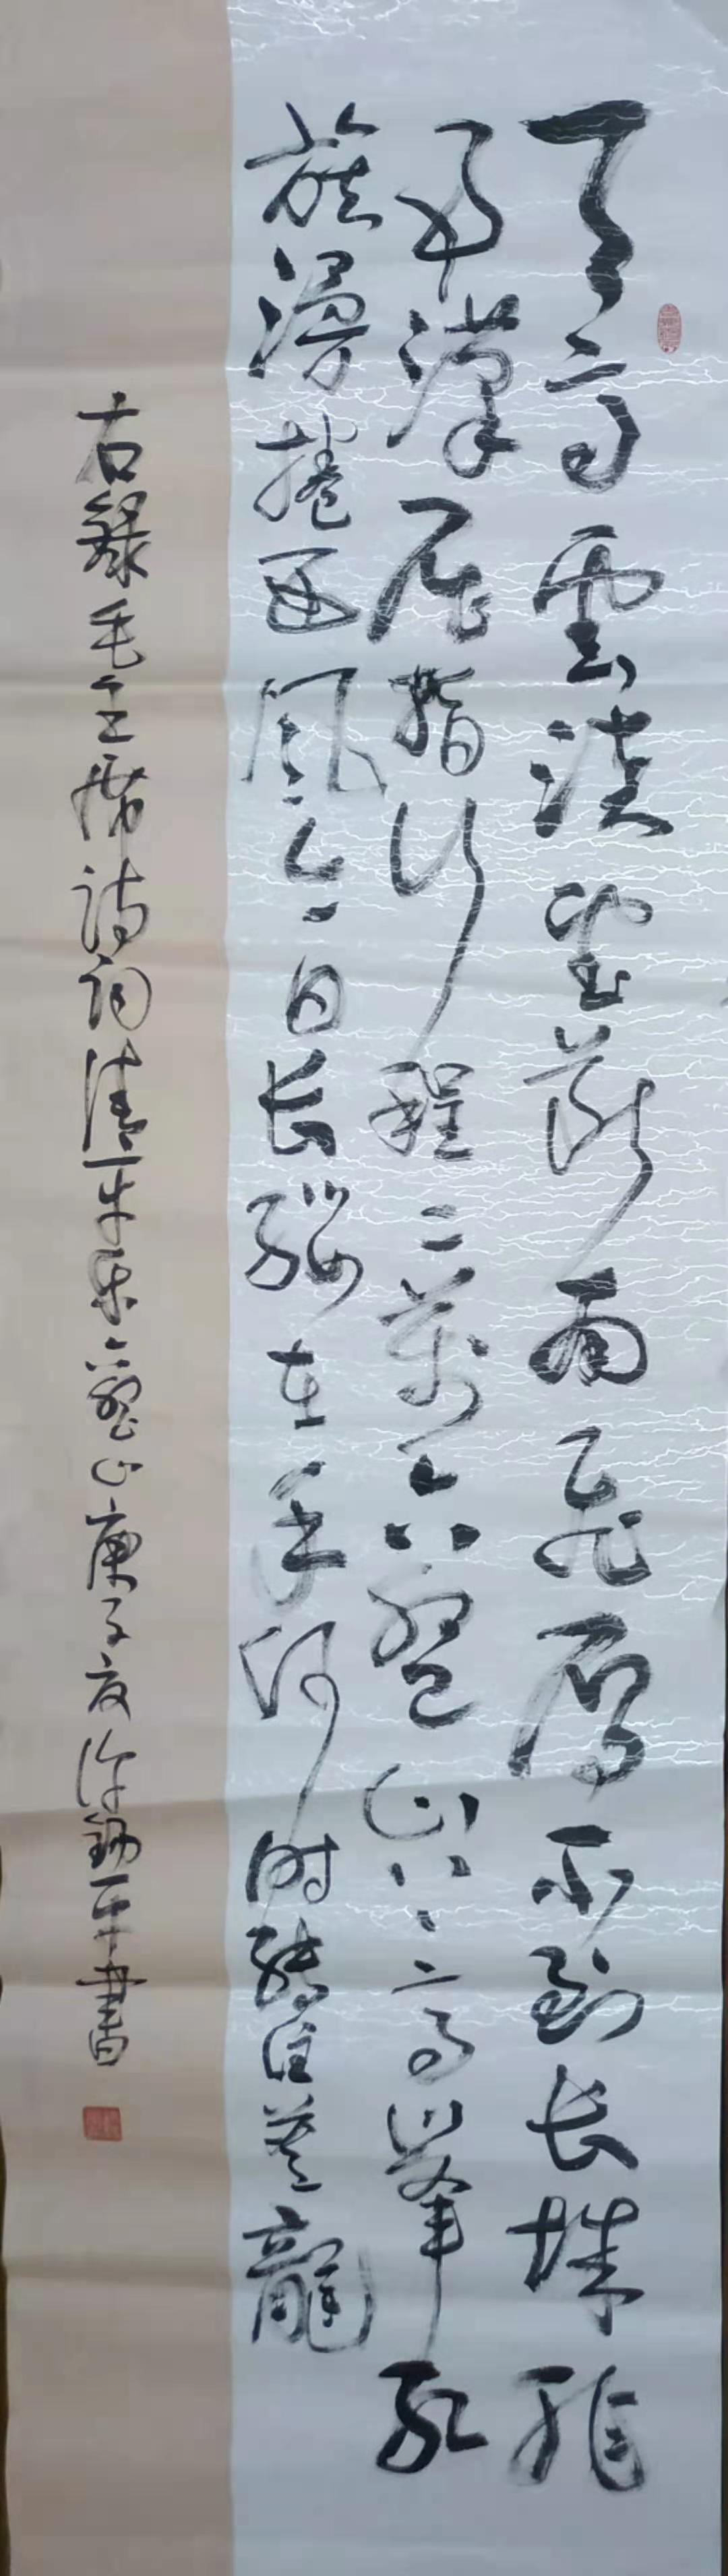 天高雲淡望斷南飛雁不到长城非
好漢屈指行程二萬六盤山上高峯红
旗漫捲西風今日长缨在手何时縛住蒼龍
右錄毛主席诗词清平乐六盤山庚子夏平書